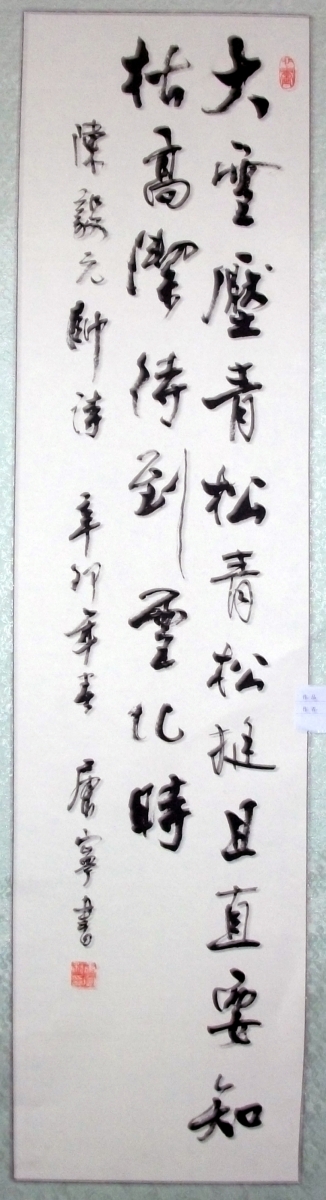 大雪壓青松青松挺且直要知
松高潔待到雪化時
陳毅元帥詩 辛卯年春 唐寧書